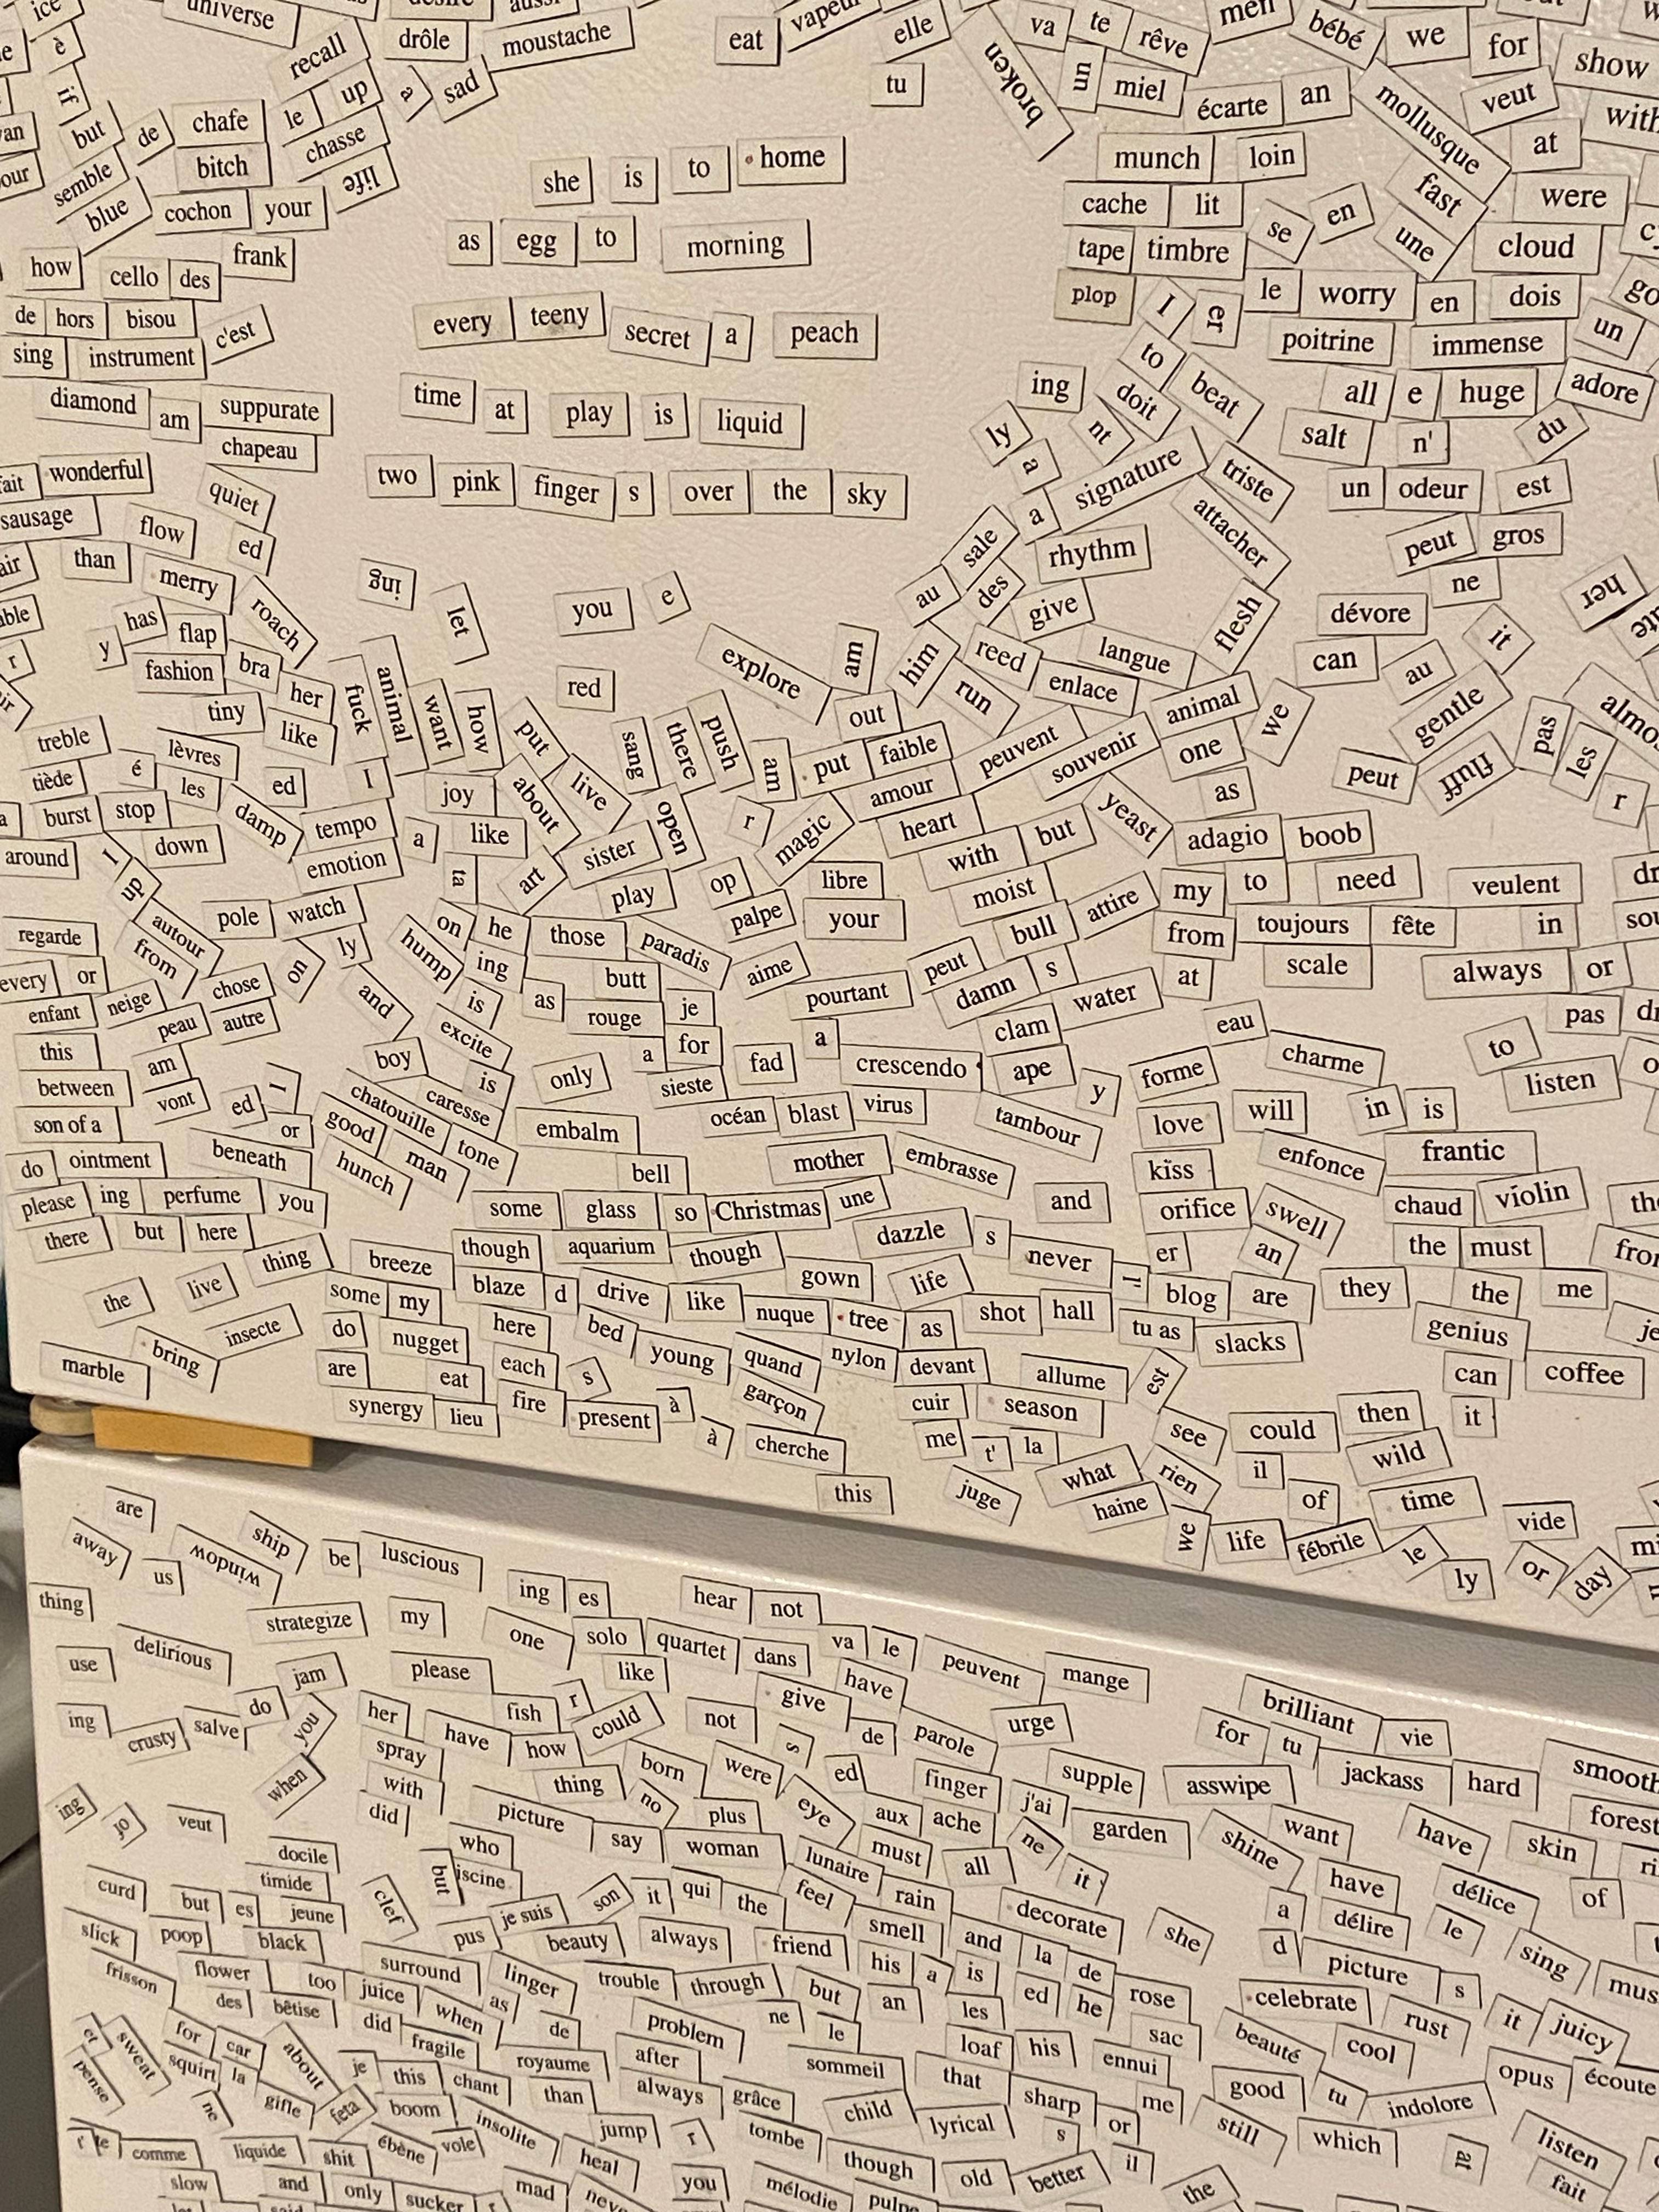 ice universe recall drôle moustache eat vapeur elle va te rêve men bébé we for
è if le up a sad tu broken un miel écarte an mollusque veut show
but de chafe chasse munch loin at with
semble bitch life she is to home cache lit fast were
blue cochon your as egg to morning tape timbre se en une cloud
how cello des frank plop I er le worry en dois
de hors bisou c'est every teeny secret a peach to poitrine immense un
sing instrument ing doit beat all e huge adore
diamond am suppurate time at play is liquid ly nt salt n' du
chapeau a signature triste
wonderful quiet two pink finger s over the sky a attacher un odeur est
sausage flow ed sale rhythm peut gros
than merry ing let you e au des give flesh ne her
y has flap roach explore am him reed langue dévore it
r fashion bra her fuck animal want how red run enlace can au gentle
tiny like put sang there push am out animal we pas les
treble lèvres put faible peuvent souvenir one peut fluff r
tiède é les ed I joy about live amour as
burst stop damp tempo a like open r magic heart but yeast adagio boob
around I down emotion ta art sister with
up play op libre moist my to need veulent
regarde autour pole watch on he those paradis palpe your bull attire from toujours fête in
every or from on ly hump ing butt aime peut scale always or
enfant neige chose and is as je pourtant damn s water at
peau autre excite rouge a for a clam eau pas
this am boy is only fad crescendo ape forme charme to
between vont ed I chatouille caresse sieste y listen
son of a or good océan blast virus tambour love will in is
do ointment beneath hunch man tone embalm mother embrasse kïss enfonce frantic
please ing perfume you bell and orifice swell chaud vïolin
there but here some glass so Christmas une dazzle s er an the must
the live thing breeze though aquarium though gown life never I blog are they the me
insecte some my blaze d drive like nuque tree as shot hall tu as slacks genius
marble bring do nugget here bed young quand nylon devant allume est can coffee
are eat each s garçon cuir season then it
synergy lieu fire present à à cherche me t' la see could wild
this juge what rien il
haine of time
we life fébrile le vide
ly or day
are
away us window ship be luscious
thing ing es hear not
strategize my one solo quartet dans va le peuvent mange
use delirious jam please like have
ing crusty salve do you her fish r could give urge brilliant vie
spray have how not s de parole for tu
when with thing born were ed finger supple asswipe jackass hard smooth
ing jo veut did picture no plus eye aux ache j'ai garden want have forest
who say woman must ne shine skin
docile lunaire all it
timide but iscine feel rain have délice of
curd but es jeune clef je suis son it qui the decorate a délire le
slick poop black pus beauty always friend smell and she d sing
frisson flower too juice surround linger trouble through his a is la de picture s
des bêtise when as but an les ed he rose celebrate it juicy
did fragile de problem ne le sac rust
et sweat for car about royaume after loaf his beauté cool
pense squirt la je this chant than sommeil ennui opus écoute
ne gifle feta boom always grâce that sharp me good tu indolore
insolite jump r child lyrical s or still
r te comme liquide shit ébène vole tombe which at listen
slow and only heal though old better il fait
sucker mad you mélodie the